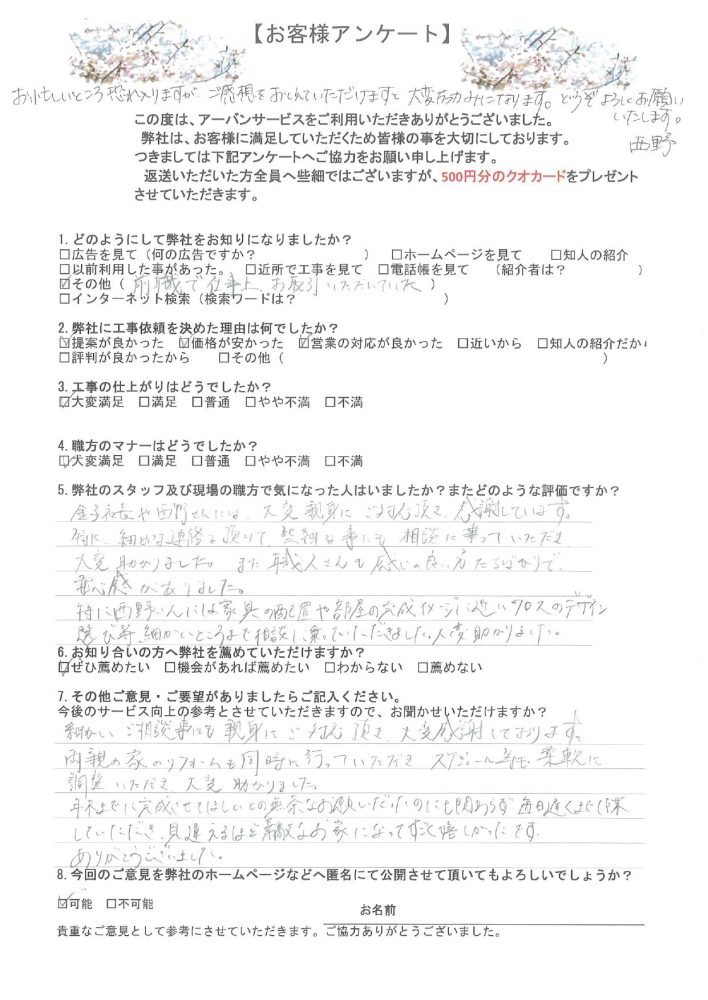 【お客様アンケート】
お忙しいところ恐れ入りますが、ご感想をおしえていただけますと大変励みになります。どうぞよろしくお願い
いたします。
西野
この度は、アーバンサービスをご利用いただきありがとうございました。
弊社は、お客様に満足していただくため皆様の事を大切にしております。
つきましては下記アンケートへご協力をお願い申し上げます。
返送いただいた方全員へ些細ではございますが、500円分のクオカードをプレゼント
させていただきます。
1. どのようにして弊社をお知りになりましたか？
□広告を見て（何の広告ですか？ ） □ホームページを見て □知人の紹介
□以前利用した事があった。 □近所で工事を見て □電話帳を見て （紹介者は？ ）
☑その他（ 前職で仕事上、お取引いただいていた ）
□インターネット検索（検索ワードは？ ）
2. 弊社に工事依頼を決めた理由は何でしたか？
☑提案が良かった ☑価格が安かった ☑営業の対応が良かった □近いから □知人の紹介だから
□評判が良かったから □その他（ ）
3. 工事の仕上がりはどうでしたか？
☑大変満足 □満足 □普通 □やや不満 □不満
4. 職方のマナーはどうでしたか？
☑大変満足 □満足 □普通 □やや不満 □不満
5. 弊社のスタッフ及び現場の職方で気になった人はいましたか？またどのような評価ですか？
金子社長や西野さんには、大変親身にご対応頂き、感謝しています。
特に、細めな連絡を頂けて、些細な事にも相談に乗っていただき
大変助かりました。また職人さんも感じの良い方たちばかりで、
安心感がありました。
特に西野さんには家具の配置や部屋の完成イメージに近いクロスのデザイン
選び等、細かいところまで相談に乗っていただきました。大変助かりました。
6. お知り合いの方へ弊社を薦めていただけますか？
☑ぜひ薦めたい □機会があれば薦めたい □わからない □薦めない
7. その他ご意見・ご要望がありましたらご記入ください。
今後のサービス向上の参考とさせていただきますので、お聞かせいただけますか？
細かいご相談事にも親身にご対応頂き、大変感謝しております。
両親の家のリフォームも同時に行っていただき、スケジュール等も柔軟に
調整いただき、大変助かりました。
年末までに完成させてほしいとの無茶なお願いだったのにも関わらず 毎日遅くまで作業
していただき、見違えるほど素敵なお家になってすごく嬉しかったです。
ありがとうございました。
8. 今回のご意見を弊社のホームページなどへ匿名にて公開させて頂いてもよろしいでしょうか？
☑可能 □不可能
お名前
貴重なご意見として参考にさせていただきます。ご協力ありがとうございました。